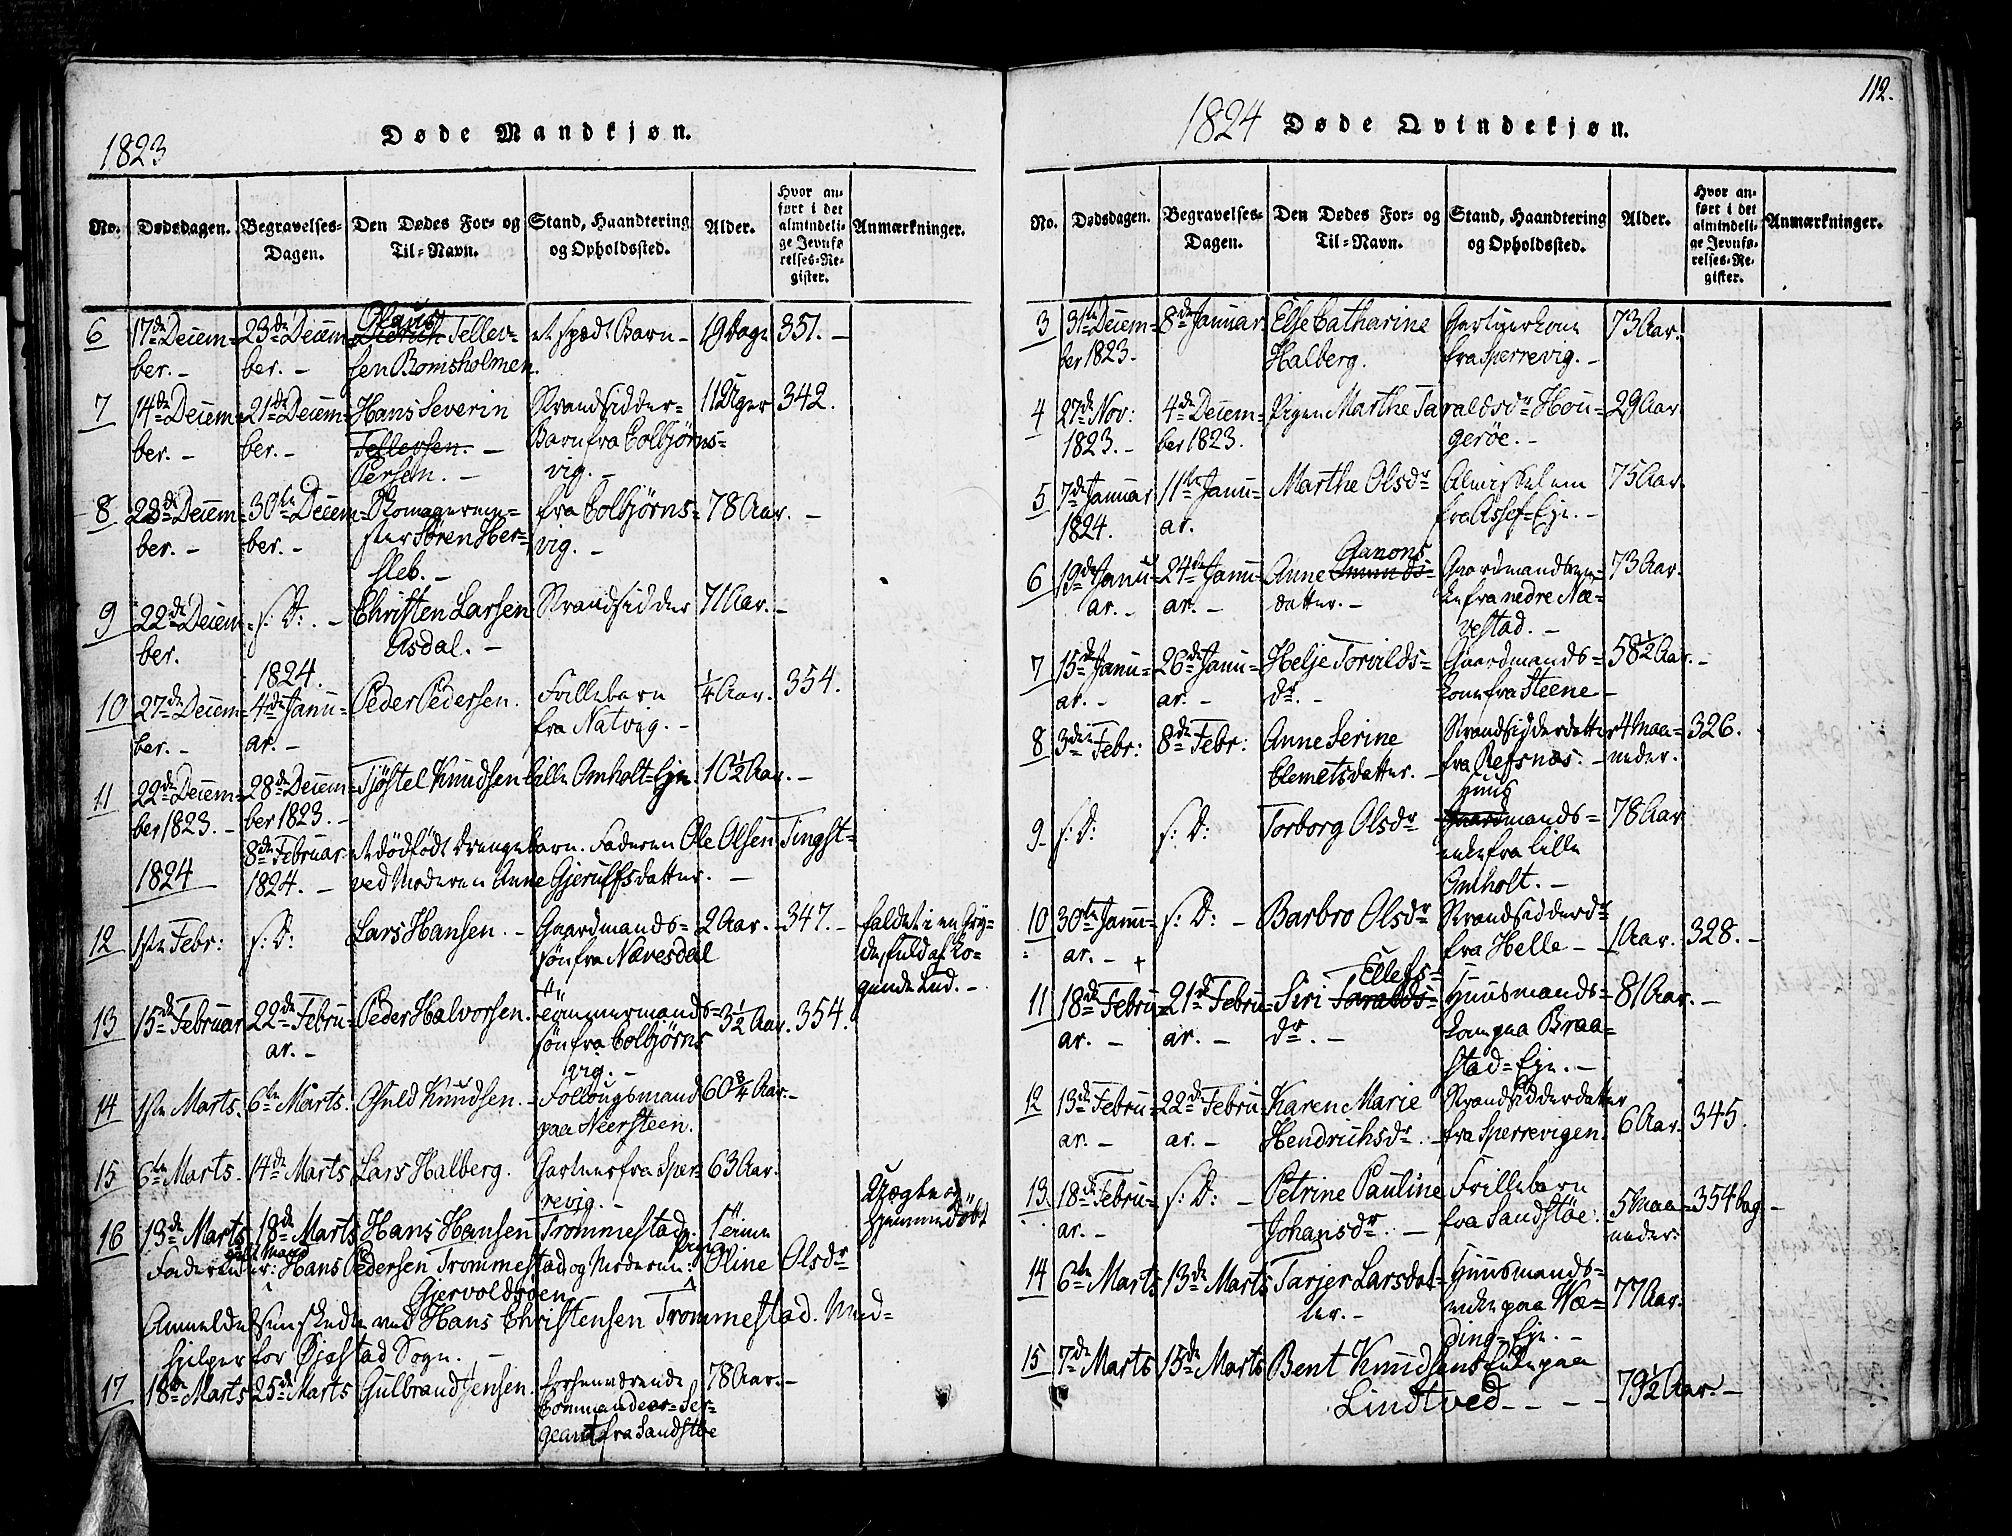 1823
Døde Mandkjøn.
No.
Dødsdagen.
Begravelses-
Dagen.
Den Dødes For- og
Til-Navn.
Stand, Haandtering
og Opholdssted.
Alder.
Hvor an-
ført i det
almindeli-
ge Jevnfø-
relses-Re-
gister.
Anmærkninger.
6
17de Decem-
ber. -
23de Decem-
ber. -
Olaus
Tellev-
sen Bomsholmen.
et spædt Barn -
19 Dage
351. -
7
14de Decem-
ber. -
21de Decem-
ber. -
Hans Severin
Tellevsen. -
Persen. -
Strandsidder-
Barn fra Colbjørns-
vig. -
11 Uger
342.
8
22de Decem-
ber. -
30te Decem-
ber. -
Skomagermes-
ster Søren Her-
sleb. -
fra Colbjørns-
vig. -
78 Aar. -
9
22de Decem-
ber.
s: D: -
Christen Larsen
Asdal. -
Strandsidder
71 Aar. -
10
27de Decem-
ber. -
1824.
4de Janu-
ar. -
Peder Pedersen.
Frillebarn
fra Natvig. -
1/4 Aar.
354.
11
22de Decem-
ber 1823. -
28de Decem-
ber 1823. -
Tjøstel Knudsen
Lille Omholt-Eje.
10 1/2 Aar. -
1824
8de Februar
1824. -
et dødfødt Drengebarn. Faderen Ole Olsen Tingst-
ved Moderen Anne Gjerulfsdatter. -
12
1ste Febr:
s: D:
Lars Hansen. -
Gaardmands-
søn fra Nævesdal
2 Aar. -
347. -
faldet i en Gry-
de, fuld af ko-
gende Lud. -
13
15de Februar
22de Febru-
ar. -
Peder Halvorsen.
Tømmermands-
søn fra Colbjørns
vig. -
3 1/2 Aar.
354.
14
1ste Marts.
6te Marts.
Osuld Knudsen. -
Follougsmand
paa Neersteen.
60 3/4 Aar. -
15
6te Marts.
14de Marts
Lars Halberg.
Gartner fra Sper-
revig. -
63 Aar.
16
13de Marts
18de Marts
Hans Hansen
Trommestad.
1 Time
Uægte og
hjemmedøbt
Faderen er: Hans Pedersen Trommestad og Moderen: Pigen Oline Olsdr
Gjervoldsøen
Anmeldelsen skede ved Hans Christensen Trommestad. Med-
hjelper for Øjestad Sogn. -
17
18de Marts
25de Marts
Gulbrand Jensen.
forhenværende
Commandeer-Ser-
geant fra Sandstøe
78 Aar. -
112.
1824 Døde Qvindekjøn.
No.
Dødsdagen.
Begravelses-
Dagen.
Den Dødes For- og
Til-Navn.
Stand, Haandtering
og Opholdssted.
Alder.
Hvor an-
ført i det
almindeli-
ge Jevnfø-
relses-Re-
gister.
Anmærkninger.
3
31te Decem-
ber 1823.
8de Januar.
Else Catharine
Halberg.
Gartnerkone
fra Sperrevig. -
73 Aar.
4
27de Nov:
1823. -
4de Decem-
ber 1823.
Pigen Marthe Taraldsdr Hou-
gerøe. -
29 Aar
5
7de Januar
1824.
11te Janu-
ar.
Marthe Olsdr
Almisselem
fra Assef-Eje. -
75 Aar.
6
19de Janu-
ar. -
24de Janu-
ar. -
Aanons
Anne Omunds-
datter. -
Gaardmandsen-
ke fra nedre Næ-
vestad. -
73 Aar.
7
15de Janu-
ar. -
26de Janu-
ar. -
Helje Torvilds-
dr. -
Gaardmands-
kone fra Steene -
58 1/2 Aar. -
8
3die Febr:
8de Febr:
Anne Serine
Clemetsdatter. -
Strandsidderdatter
fra Refsnæs. -
4 Maa-
neder.
326.
9
s: D:
s: D:
Torborg Olsdr
Huus
Gaardmands-
enke fra Lille
Omholt. -
78 Aar
10
30te Janu-
ar. -
s: D: -
Barbro Olsdr
Strandsidderdr
fra Helle -
1 Aar.
328. -
11
18de Febru-
ar. -
21de Febru-
ar. -
Ellefs-
Siri Taralds-
dr. -
Huusmands-
kone paa Braa-
stad-Eje. -
81 Aar. -
12
13de Febru-
ar. -
22de Febru-
ar. -
Karen Marie
Hendrichsdr. -
Strandsidderdatter
fra Sperrevigen.
6 Aar.
345.
13.
18de Febru-
ar. -
s: D: -
Petrine Pauline
Johansdr. -
Frillebarn
fra Sandstøe.
5 Maa-
neder.
354 bag -
14
6te Marts
13de Marts
Tarjer Larsdat-
ter. -
Huusmands-
enke paa Næ-
ding-Eje. -
77 Aar.
15
7de Marts
15de Marts
Bent Knudsens Enke paa
Lindtved - - - -
79 1/2 Aar. -